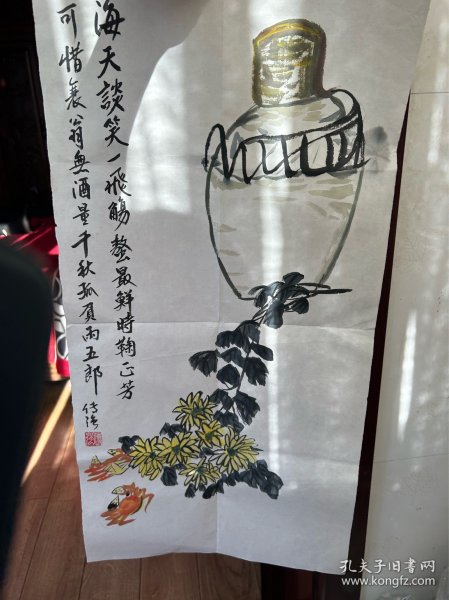 海天談笑一飛觴螯最鮮時鞠正芳
可惜衰翁無酒量千秋孤負兩五郎
孔夫子旧书网
www.kongfz.com